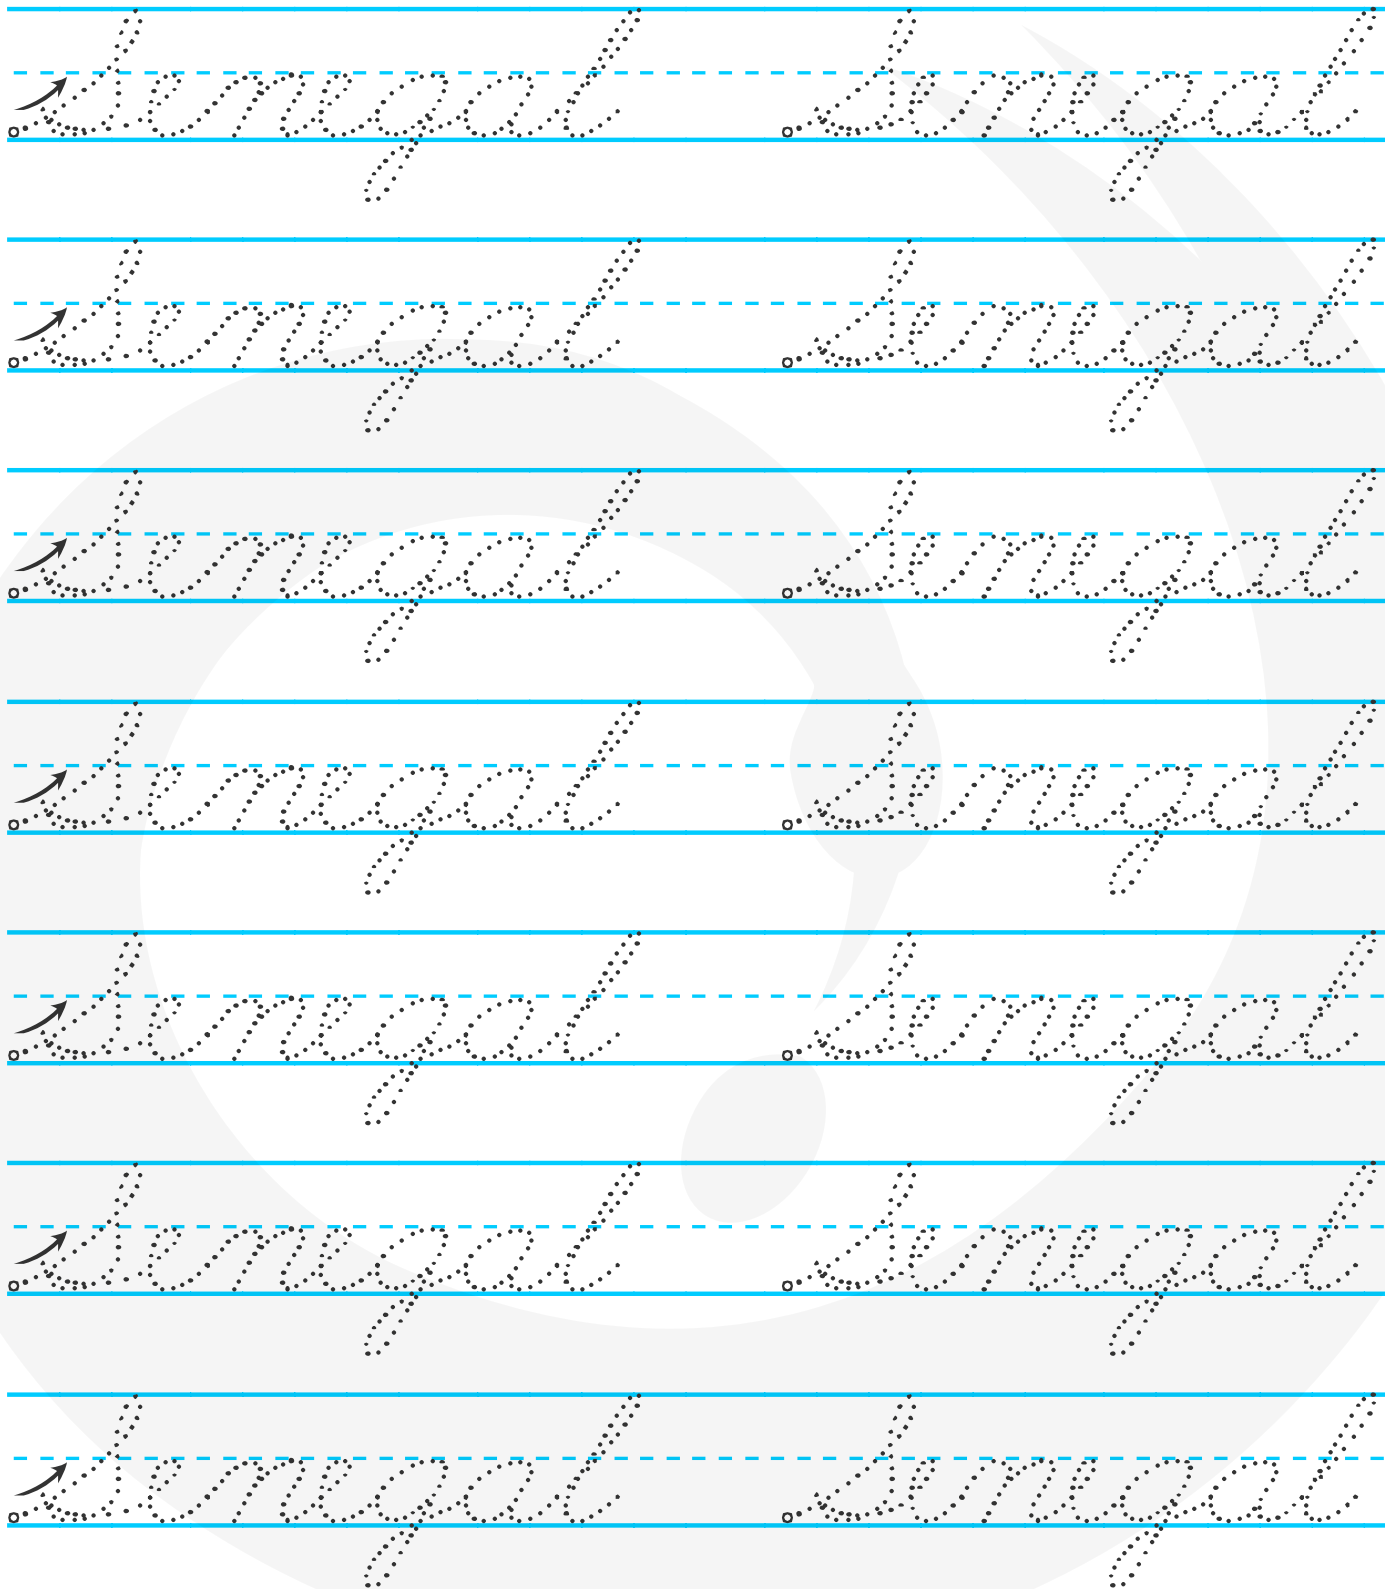 Senegal Senegal
Senegal Senegal
Senegal Senegal
Senegal Senegal
Senegal Senegal
Senegal Senegal
Senegal Senegal